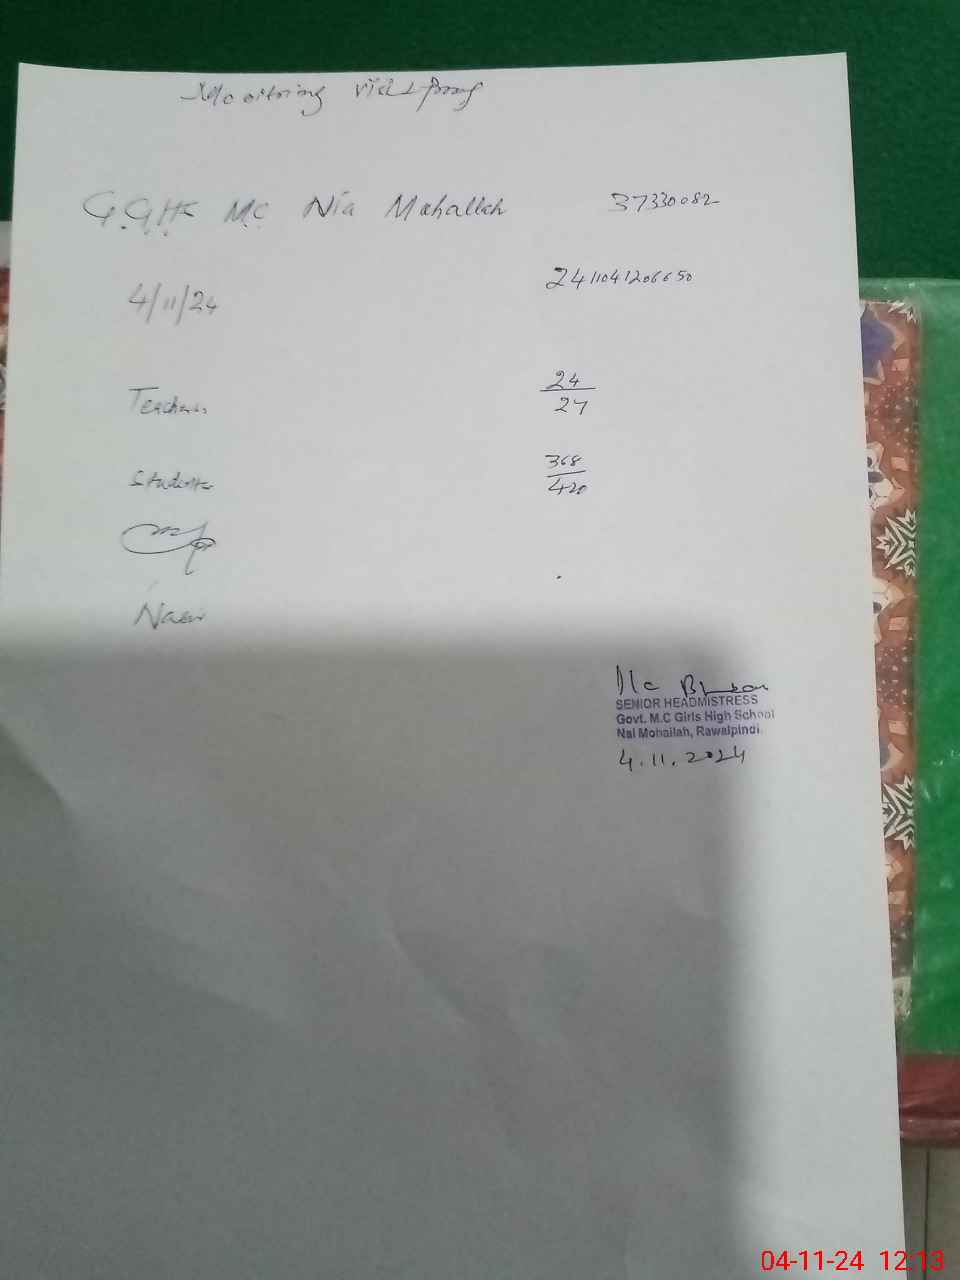 Monitoring Visit Proof
G.G.HS M.C Nia Mohallah 37330082
4/11/24 2411041206650
Teachers 24/27
Students 368/420
Nasir
SENIOR HEADMISTRESS
Govt. M.C Girls High School
Nai Mohallah, Rawalpindi.
4.11.2024
04-11-24 12:13